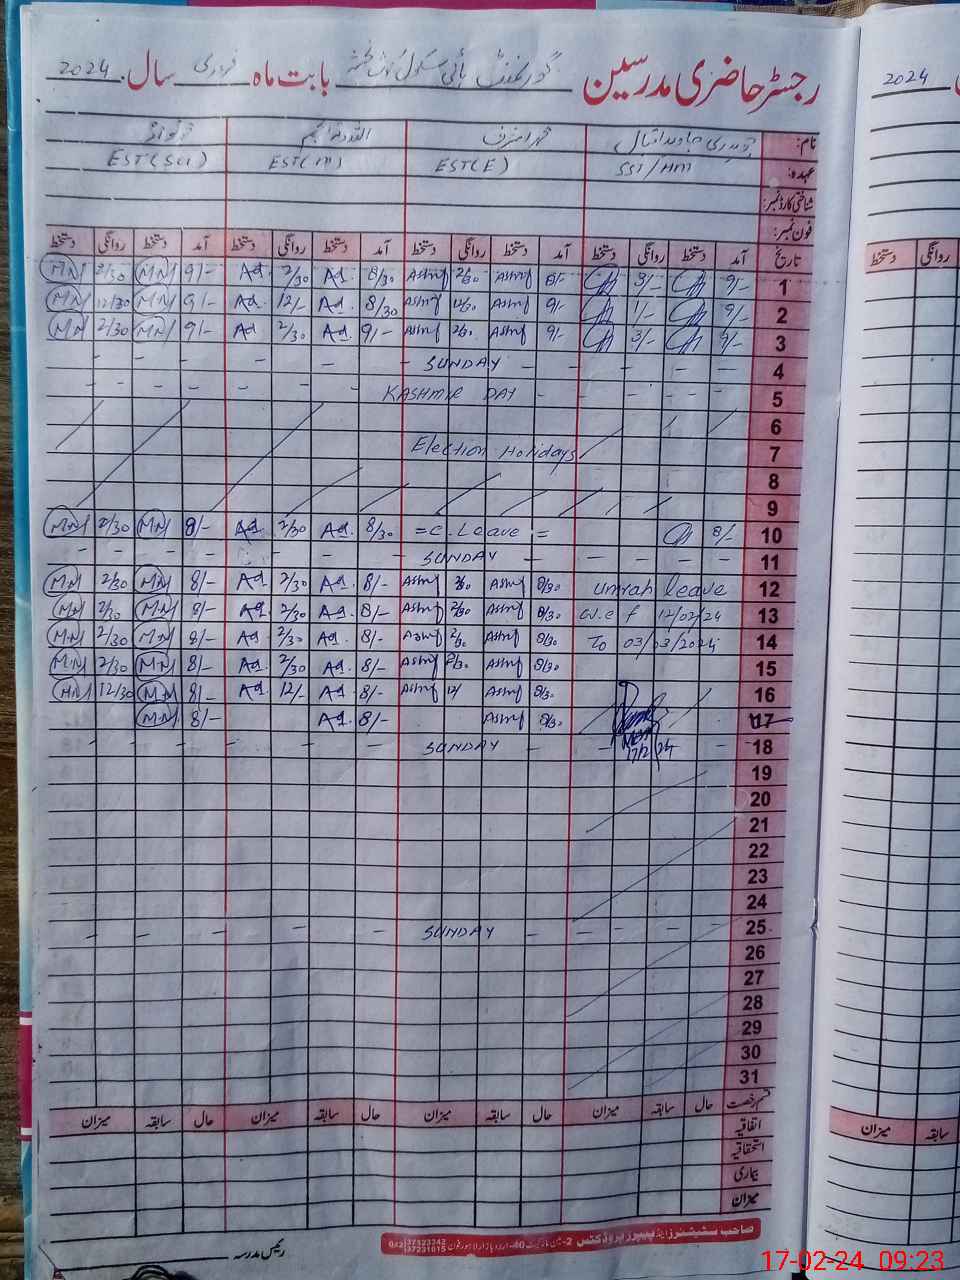 رجسٹر حاضری مدرسین گورنمنٹ ہائی سکول بابت ماہ فروری سال 2024
نام:
عہدہ: SST/HM EST(E) EST(M) EST(Sci)
شناختی کارڈ نمبر:
فون نمبر:
تاریخ آمد دستخط روانگی دستخط آمد دستخط روانگی دستخط آمد دستخط روانگی دستخط آمد دستخط روانگی دستخط
1 9/- 3/- 8/- Ashrf 2/30 Ashrf 8/30 Ad. 2/30 Ad. 9/- MN 2/30 MN
2 9/- 1/- 9/- Ashrf 12/30 Ashrf 8/30 Ad. 12/- Ad. 9/- MN 12/30 MN
3 9/- 3/- 9/- Ashrf 2/30 Ashrf 9/- Ad. 2/30 Ad 9/- MN 2/30 MN
4 - - - - SUNDAY - - - - -
5 - - - - KASHMIR DAY - - - - -
6
7 Election Holidays
8
9
10 8/- = C. Leave = 8/30 Ad. 2/30 Ad. 8/- MN 2/30 MN
11 - - - - SUNDAY - - - - -
12 umrah leave 8/30 Ashrf 2/30 Ashrf 8/- Ad. 2/30 Ad 8/- MN 2/30 MN
13 w.e f 12/02/24 8/30 Ashrf 2/30 Ashrf 8/- Ad. 2/30 Ad 8/- MN 2/30 MN
14 To 03/03/2024 8/30 Ashrf 2/30 Ashrf 8/- Ad. 2/30 Ad 8/- MN 2/30 MN
15 8/30 Ashrf 2/30 Ashrf 8/- Ad. 2/30 Ad. 8/- MN 2/30 MN
16 8/30 Ashrf 12/ Ashrf 8/- Ad. 12/- Ad. 8/- MN 12/30 MN
17 8/30 Ashrf 8/- Ad. 8/- MN
18 17/2/24 - - SUNDAY - - - - -
19
20
21
22
23
24
25 - - - - SUNDAY - - - - -
26
27
28
29
30
31
قسم رخصت حال سابقہ میزان حال سابقہ میزان حال سابقہ میزان حال سابقہ میزان
اتفاقیہ
استحقاقیہ
بیماری
میزان
رئیس مدرسہ
صاحب سٹیشنرز اینڈ پیپرز پروڈکٹس
042 37323342
37231015
2024
روانگی دستخط
سابقہ میزان
17-02-24 09:23